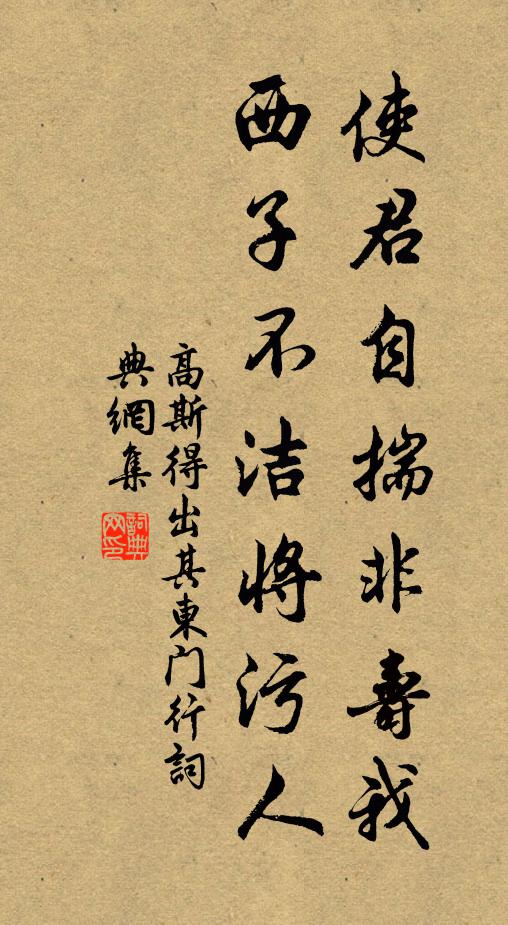 使君自揣非壽我
西子不洁將污人
高斯得出其東門行詞
典網集
詞典
网印